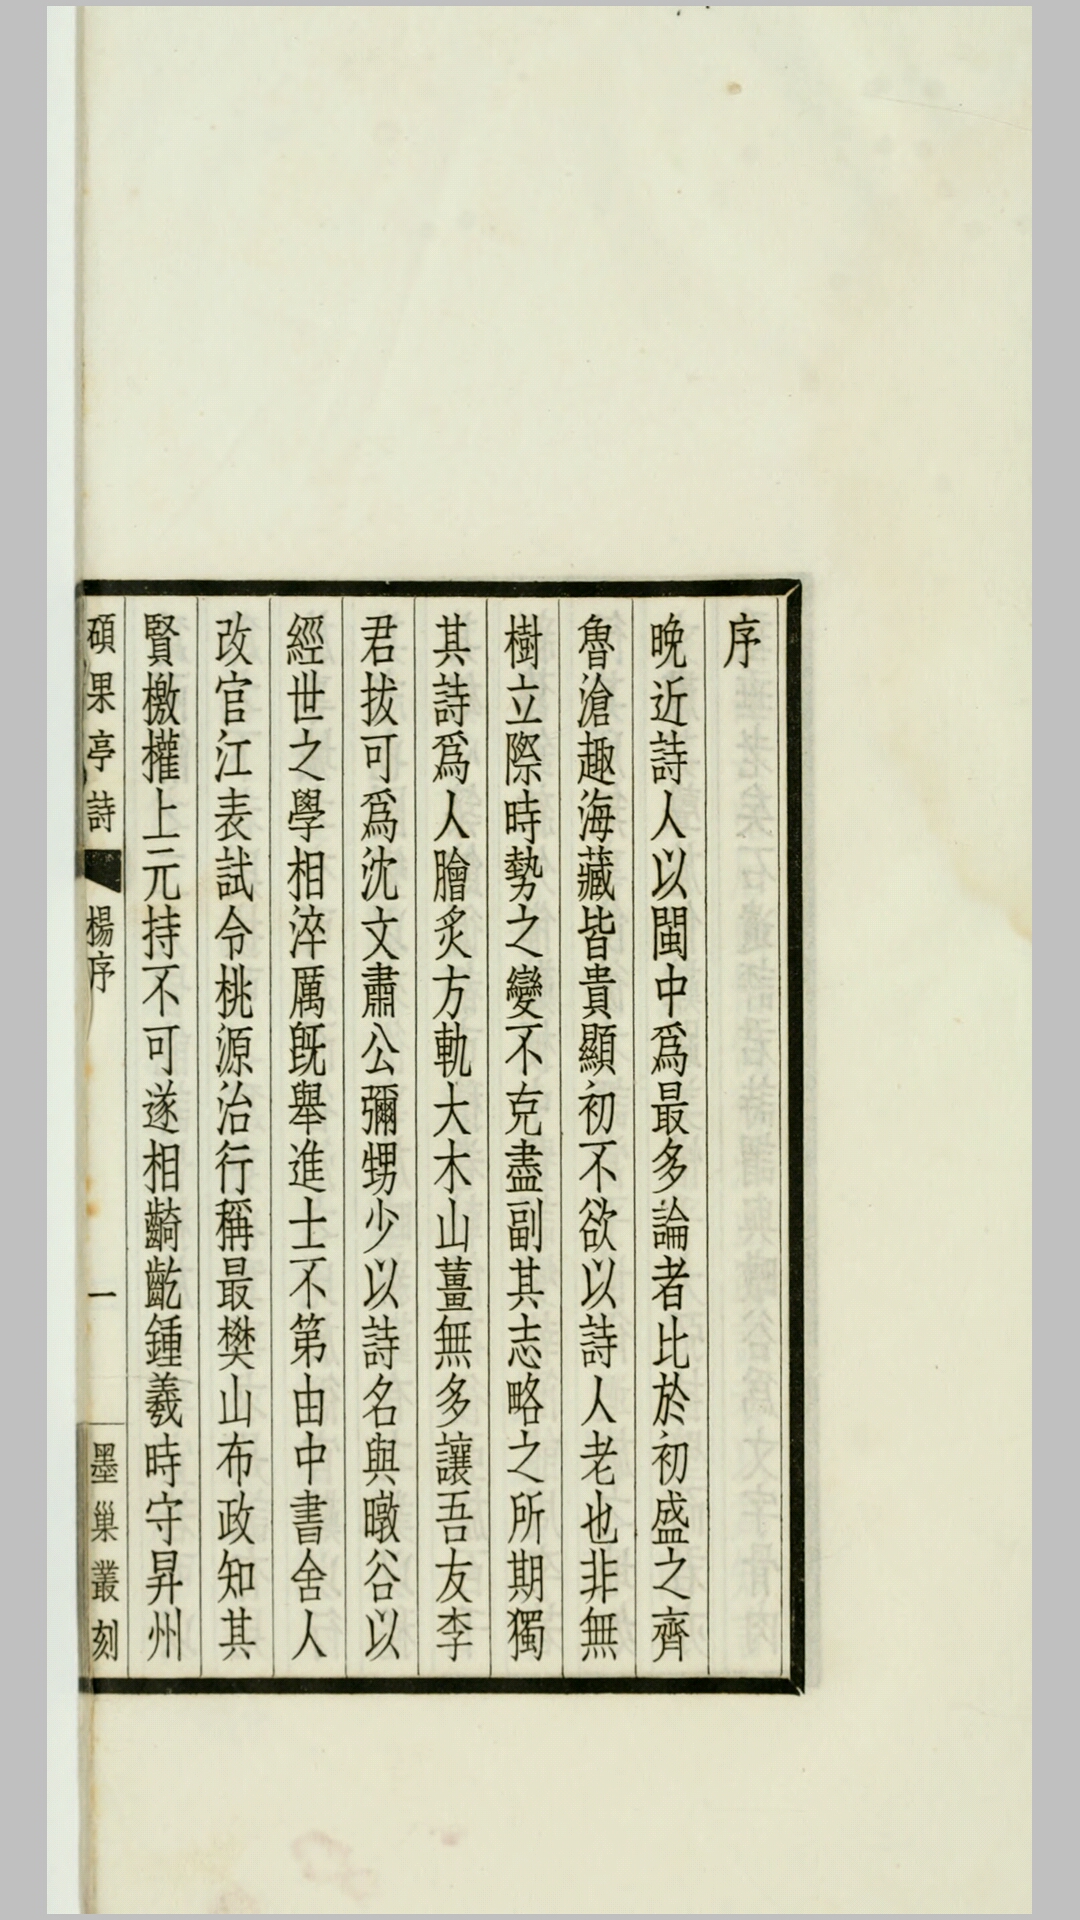 序
晚近詩人以閩中爲最多論者比於初盛之齊
魯滄趣海藏皆貴顯初不欲以詩人老也非無
樹立際時勢之變不克盡副其志略之所期獨
其詩爲人膾炙方軌大木山薑無多讓吾友李
君拔可爲沈文肅公彌甥少以詩名與暾谷以
經世之學相淬厲旣舉進士不第由中書舍人
改官江表試令桃源治行稱最樊山布政知其
賢檄權上元持不可遂相齮齕鍾羲時守昇州
碩果亭詩
楊序
一
墨巢叢刻